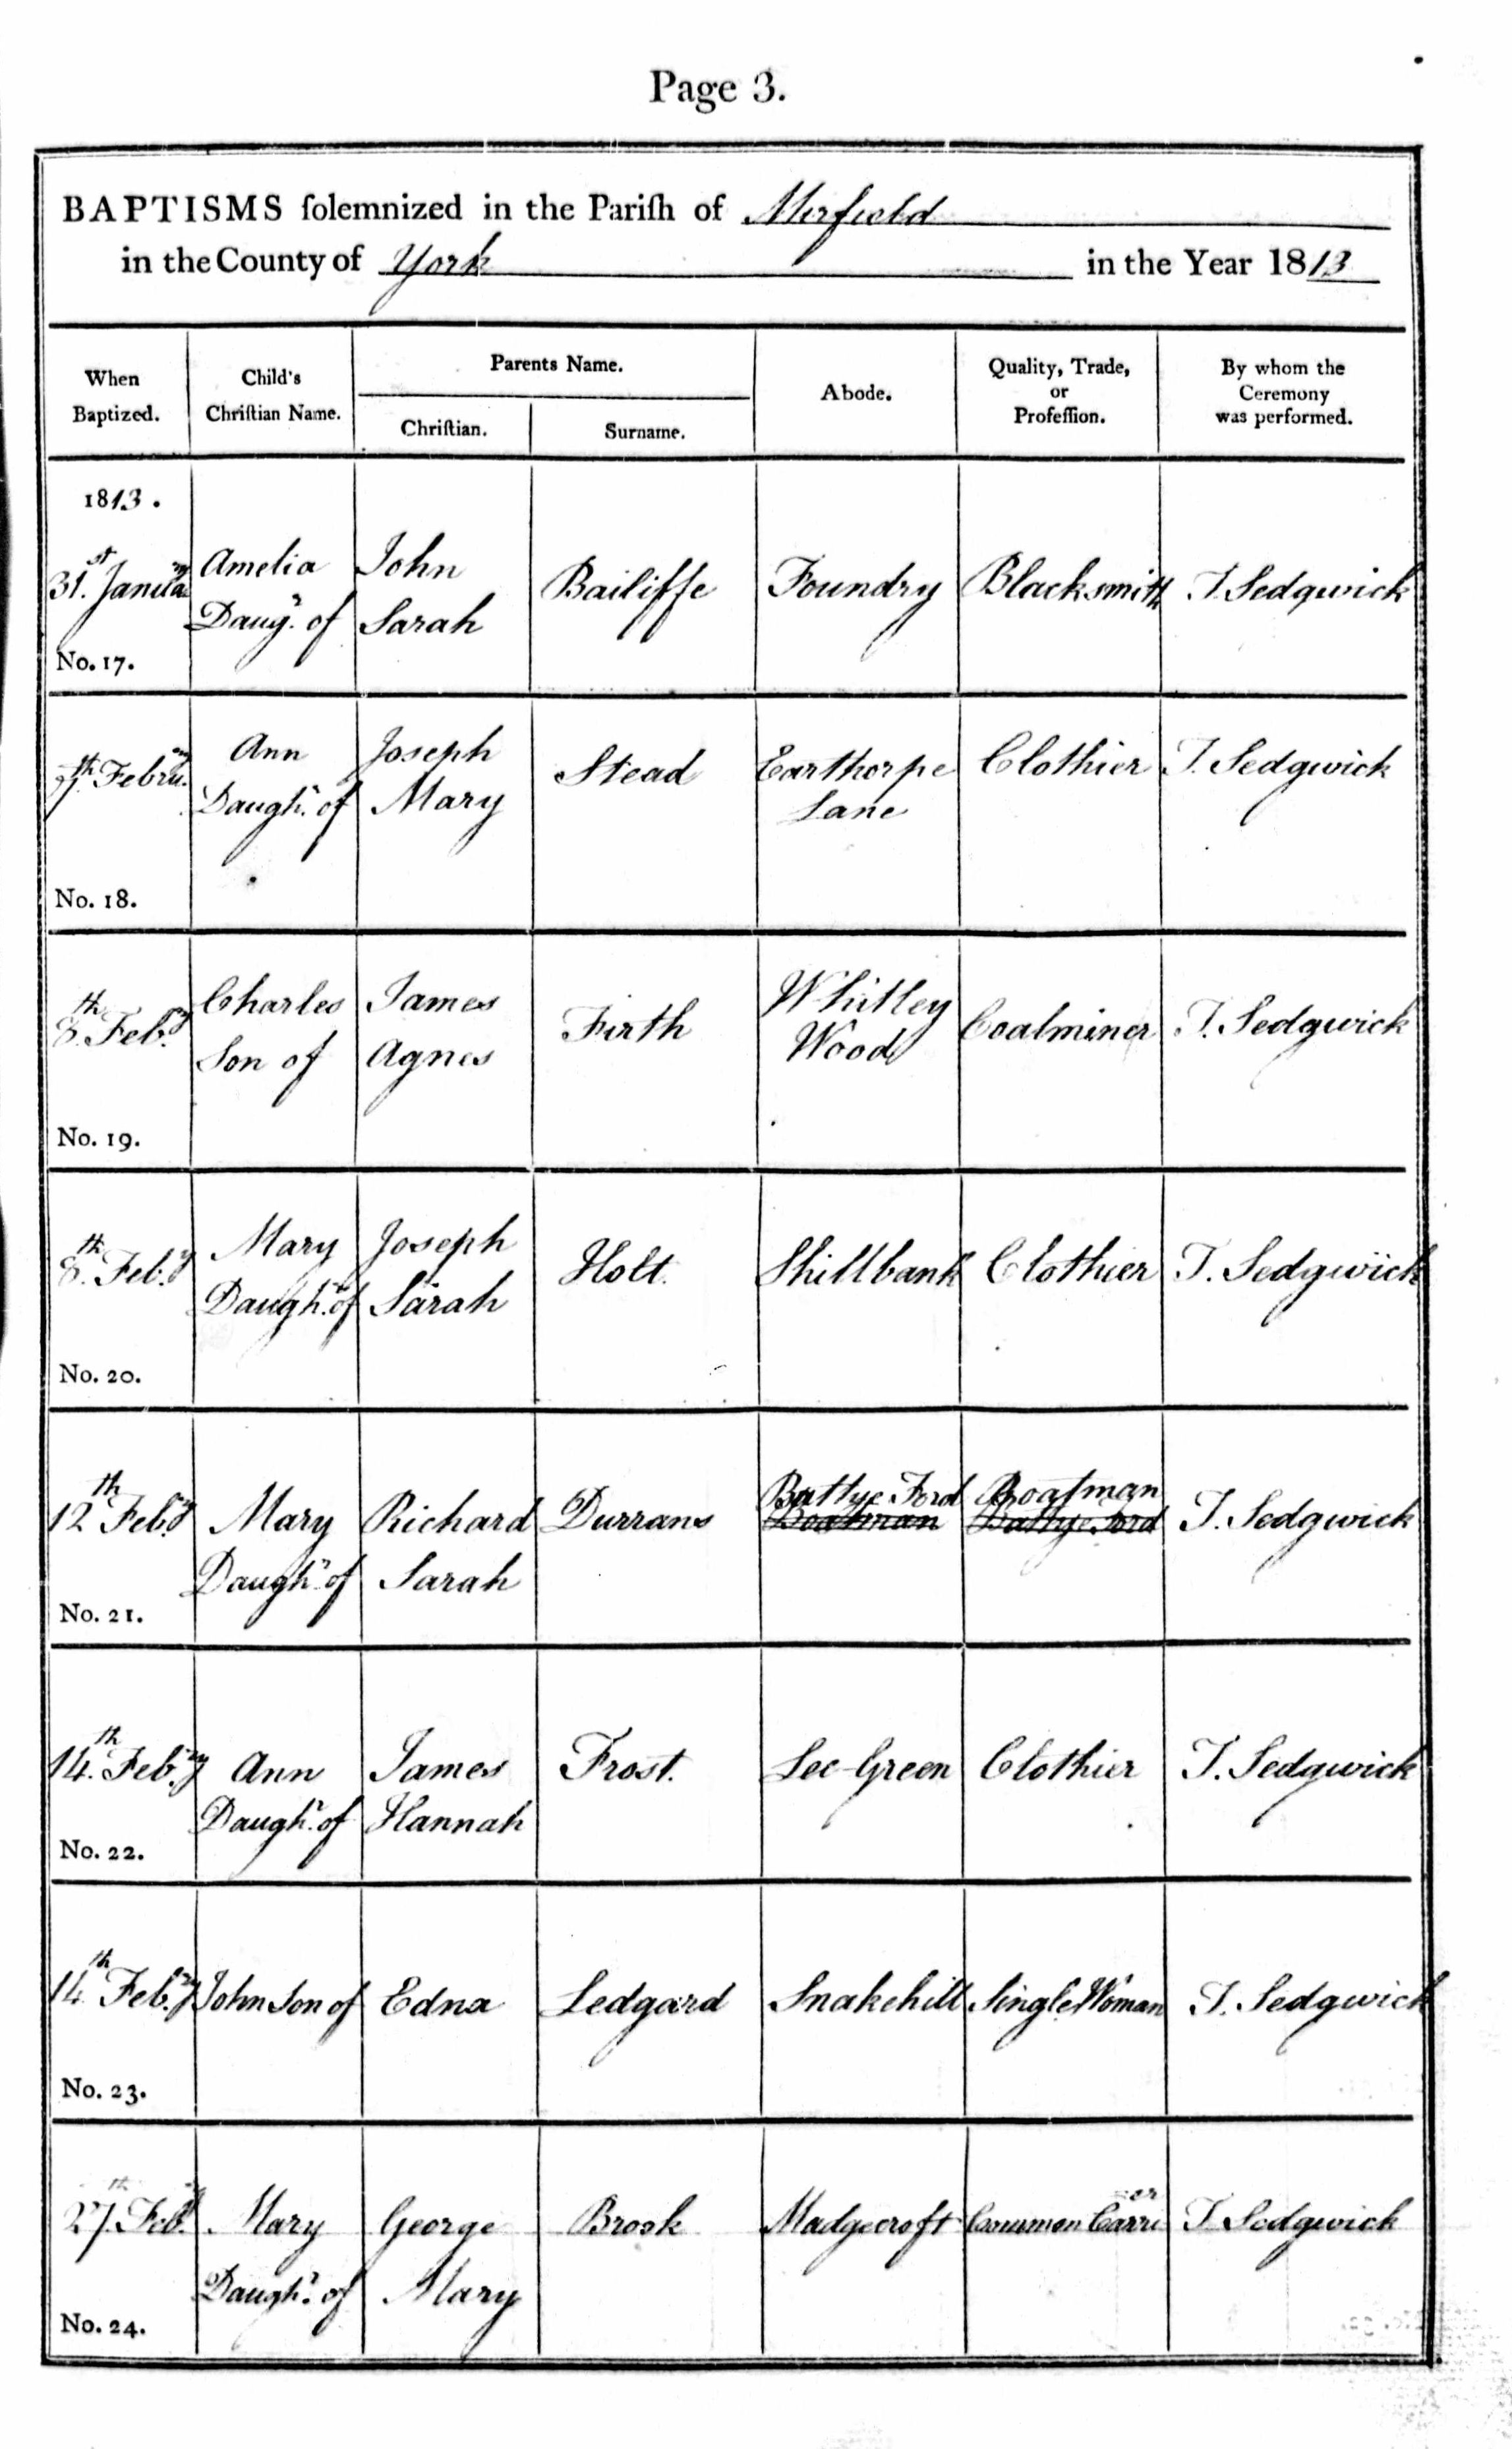 Page 3.
BAPTISMS solemnized in the Parish of Mirfield
in the County of York in the Year 1813
When Baptized.
Child's Christian Name.
Parents Name.
Christian.
Surname.
Abode.
Quality, Trade, or Profession.
By whom the Ceremony was performed.
1813.
31.st Januãry
Amelia
Daugr. of
John
Sarah
Bailiffe
Foundry
Blacksmith
T. Sedgwick
No. 17.
7th Febru.ary
Ann
Daughr. of
Joseph
Mary
Stead
Earthorpe
Lane
Clothier
T. Sedgwick
No. 18.
8.th Feb.ry
Charles
Son of
James
Agnes
Firth
Whitley
Wood
Coalminer
T. Sedgwick
No. 19.
8.th Feb.ry
Mary
Daughr. of
Joseph
Sarah
Holt.
Shillbank
Clothier
T. Sedgwick
No. 20.
12th Feb.ry
Mary
Daughr. of
Richard
Sarah
Durrans
Battye Ford
Boatman
Boatman
Battye Ford
T. Sedgwick
No. 21.
14.th Feb.ry
Ann
Daughr. of
James
Hannah
Frost.
Lee-Green
Clothier
T. Sedgwick
No. 22.
14th Feb.ry
John Son of
Edna
Ledgard
Snakehill
Single Woman
T. Sedgwick
No. 23.
27.th Feb.ry
Mary
Daughr. of
George
Mary
Brook
Madgecroft
Common Carrier
T. Sedgwick
No. 24.